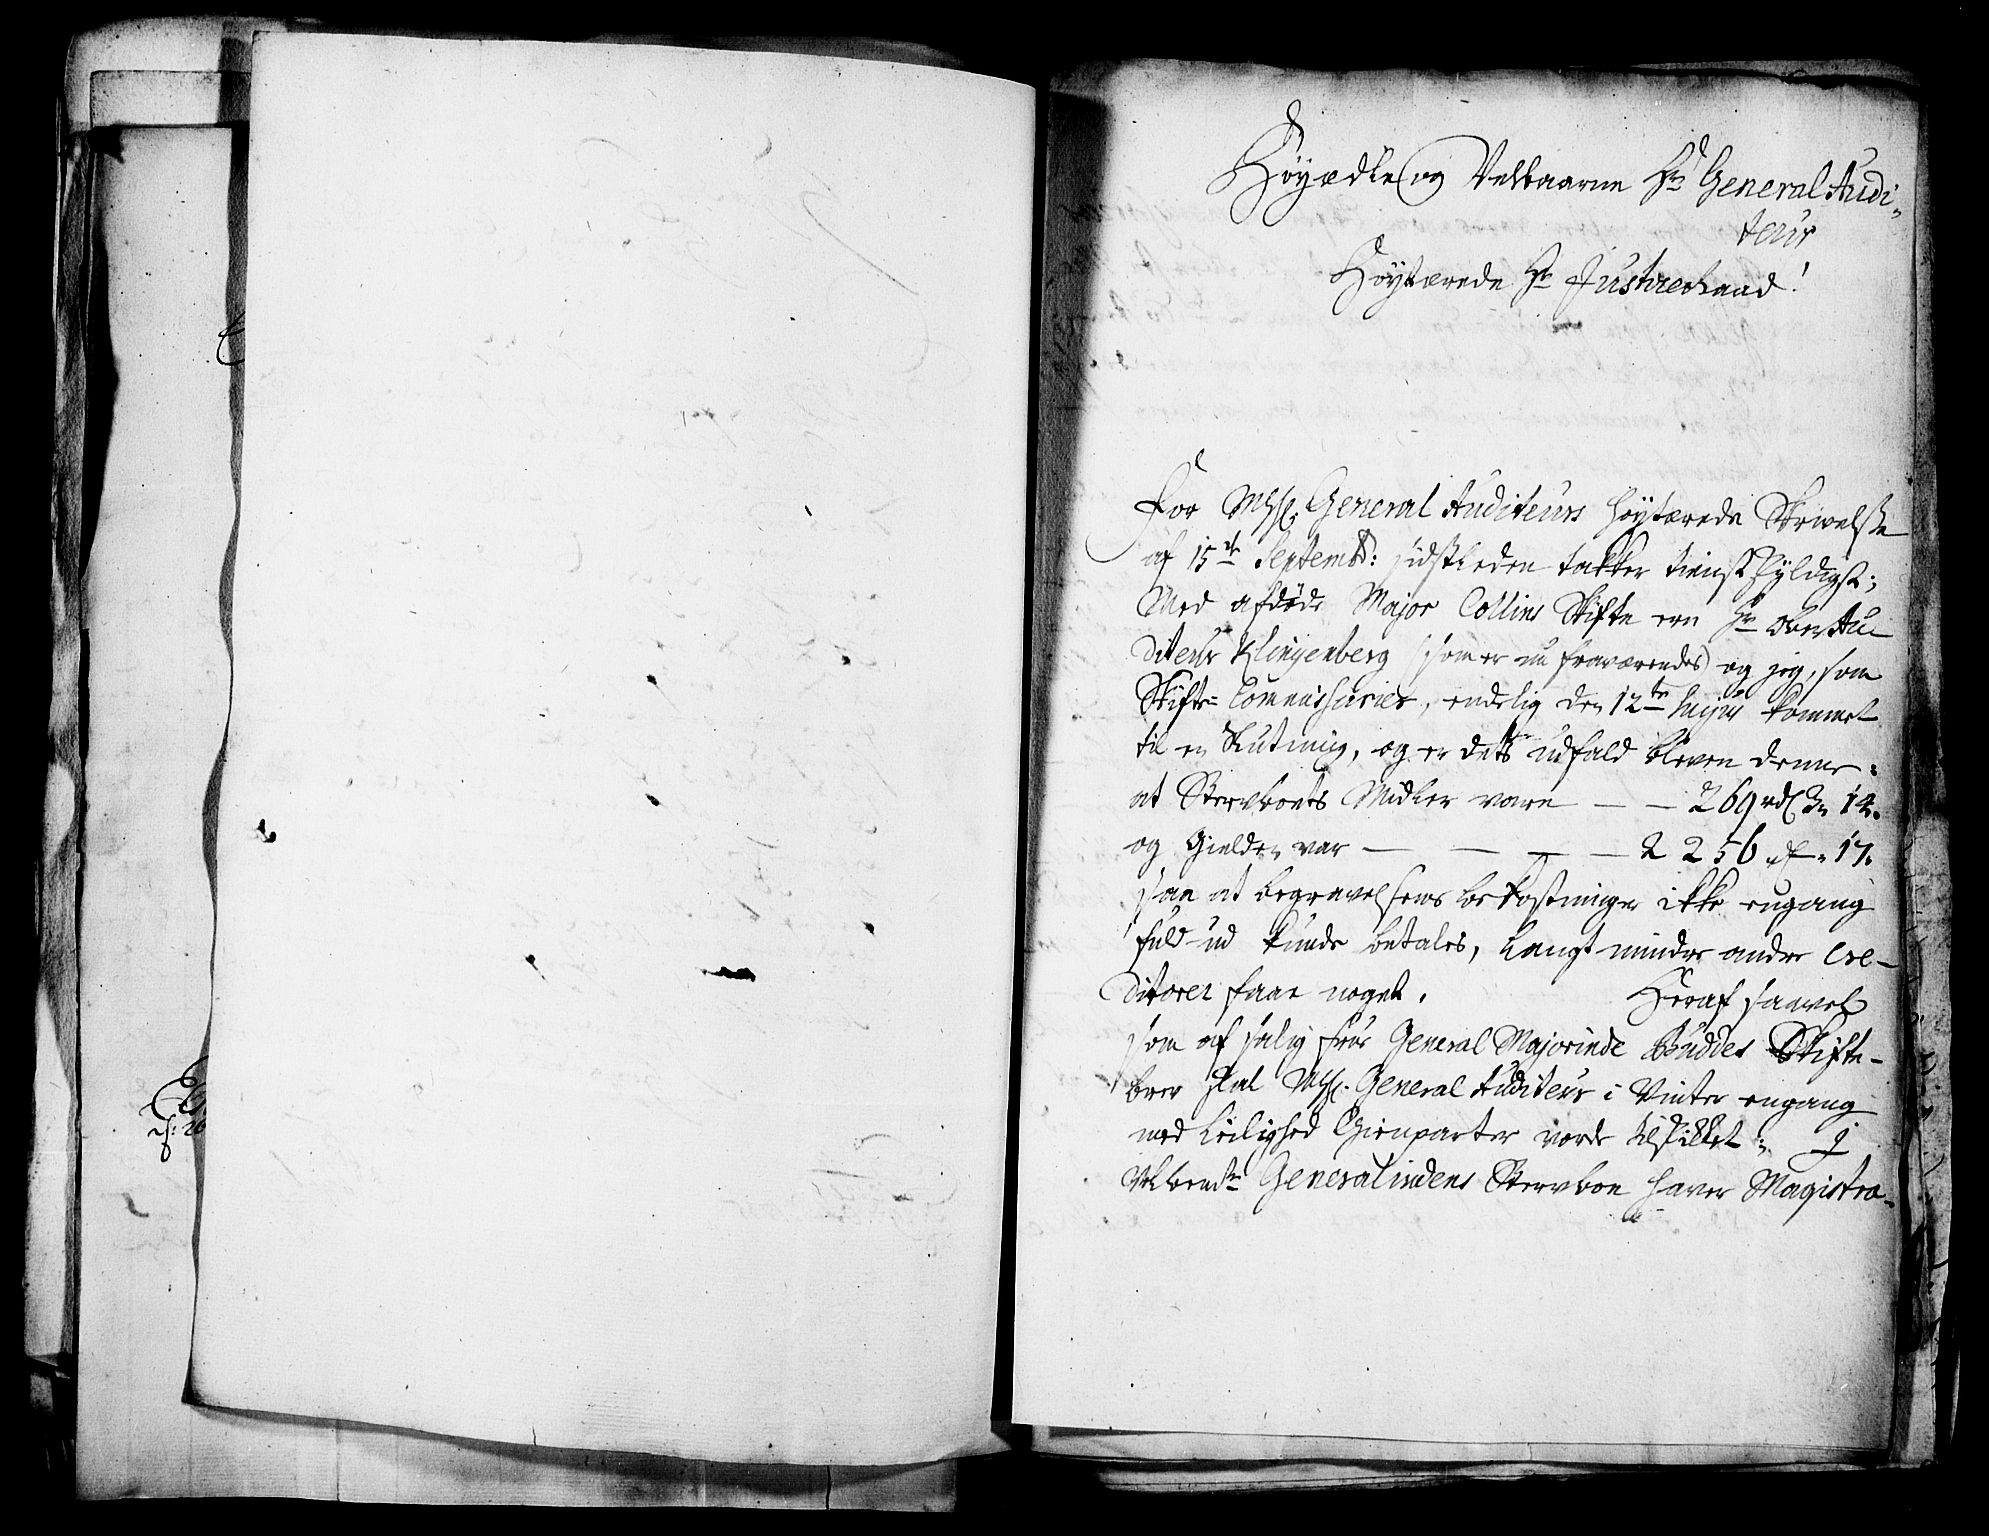 Høyædle og Velbaarne Hr General Audi-
teur
Høytærede Hr Justice Raad!
For Msl: General Auditeurs høytærede Skrivelse
af 15de Septembr: sidstleden takker tienstskyldigst;
Med afdøde Major Collins Skifte ere Hr Ober Au-
diteur Klingenberg (som er nu fraværendes) og jeg, som
Skifte-Commissarier, endelig den 12te hujus kommet
til en Slutning, og er dets udfald bleven denne:
at Stervboets Midler vare — — 269 rdl 3 14.
og Gielden var — — — — 2256 17.
saa at begravelsens bekostninger ikke engang
fuld ud kunde betales, langt mindre andre Cre-
ditorer faae noget. Heraf saavel
som af salig frue General Majorinde Buddes Skifte-
brev skal Msl: General Auditeur i Vinter engang
med Leilighed Gienparter vorde tilskikket; J
Velbemte Generalindens Stervboe haver Magistra-